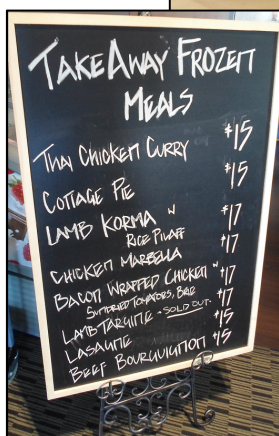 TAKEAWAY FROZEN
MEALS
THAI CHICKEN CURRY $15
COTTAGE PIE $15
LAMB KORMA W $17
RICE PILAFF
CHICKEN MARBELLA $17
BACON WRAPPED CHICKEN W $17
SUNDRIED TOMATOES, BRIE
LAMB TARGINE - SOLD OUT - $17
LASAGNE $15
BEEF BOURGUIGNON $15